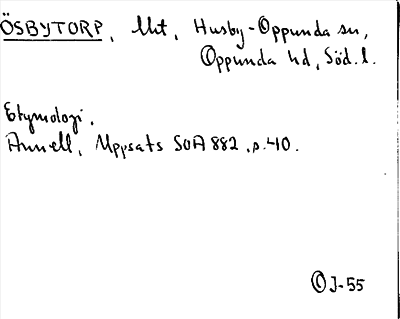 ÖSBYTORP, Uht, Husby-Oppunda sn,
Oppunda hd, Söd. l.
Etymologi.
Annell, Uppsats SOA 882, p. 40.
ⓒ J-55